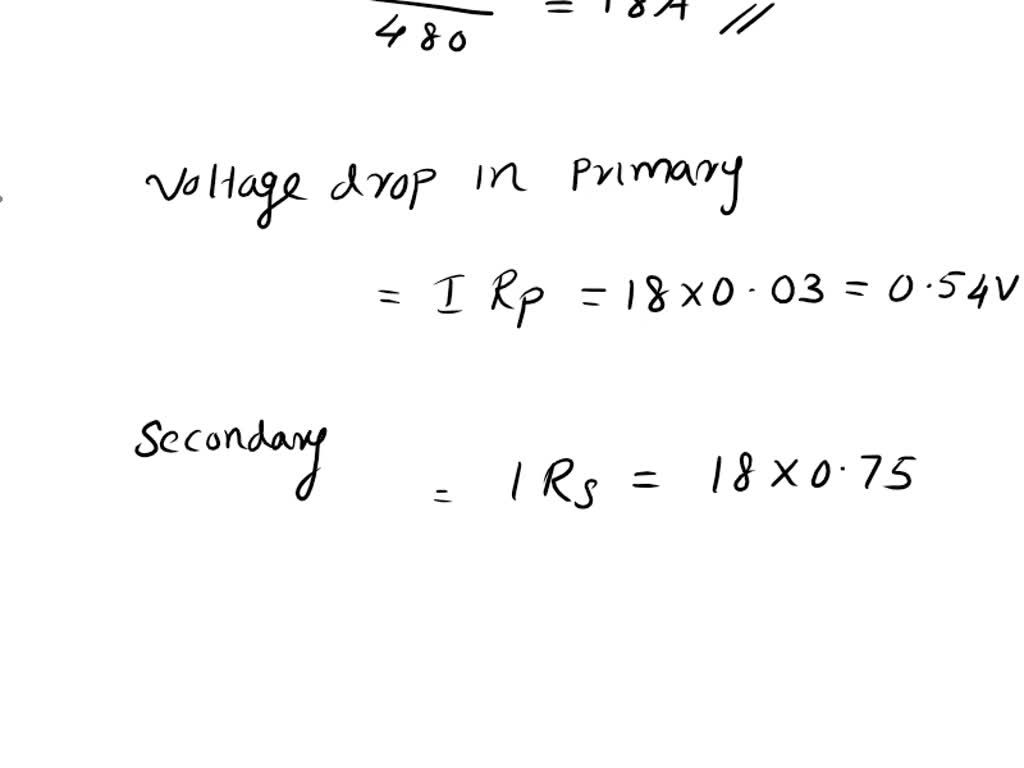 480 = 18A //
Voltage drop in primary
= I Rp = 18 x 0.03 = 0.54V
Secondary = I Rs = 18 x 0.75